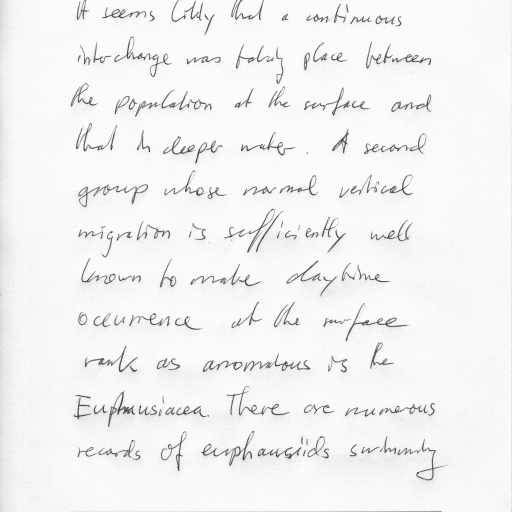 It seems likly that a continuous
interchange was taking place between
the population at the surface and
that in deeper water. A second
group whose normal vertical
migration is sufficiently well
known to make daytime
ocurrence at the surface
rank as anomalous is the
Euphausiacea. There are numerous
records of euphausiids swimming